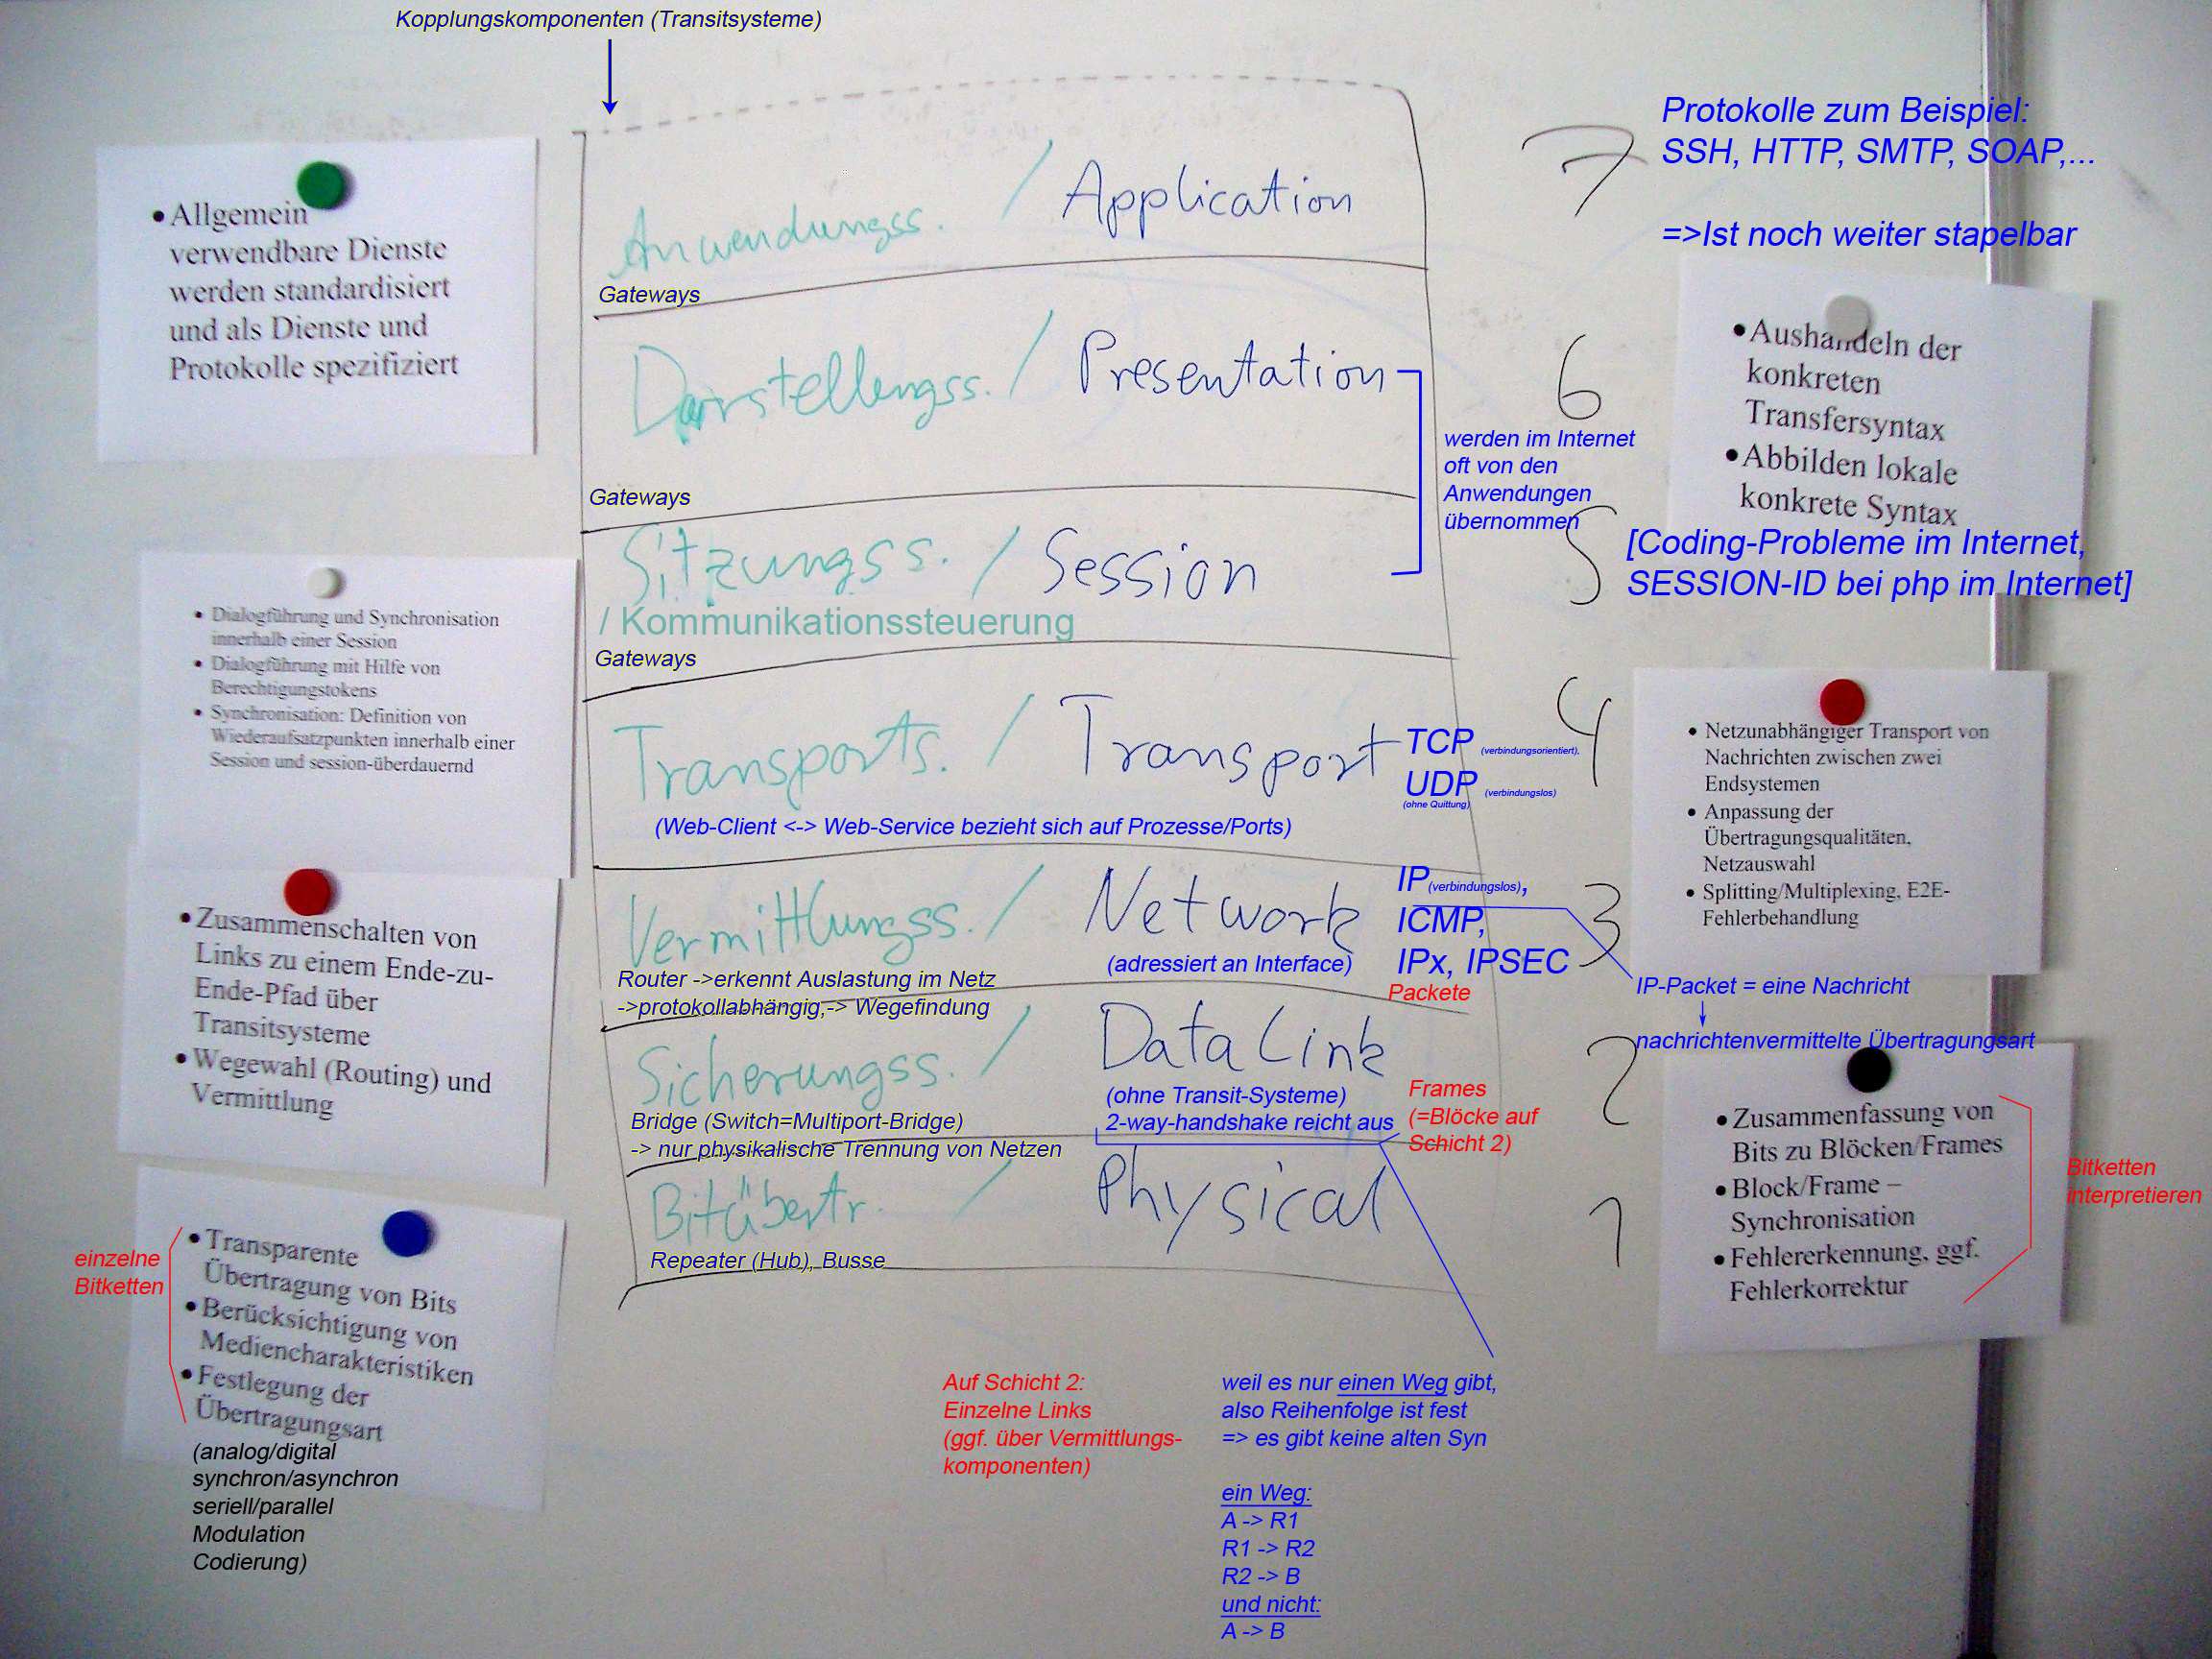 Kopplungskomponenten (Transitsysteme)
• Allgemein
verwendbare Dienste
werden standardisiert
und als Dienste und
Protokolle spezifiziert
Anwendungss. / Application
7
Protokolle zum Beispiel:
SSH, HTTP, SMTP, SOAP,...
=>Ist noch weiter stapelbar
Gateways
Darstellungss. / Presentation
6
• Aushandeln der
konkreten
Transfersyntax
• Abbilden lokale
konkrete Syntax
werden im Internet
oft von den
Anwendungen
übernommen
Gateways
Sitzungss. / Session
/ Kommunikationssteuerung
5
[Coding-Probleme im Internet,
SESSION-ID bei php im Internet]
• Dialogführung und Synchronisation
innerhalb einer Session
• Dialogführung mit Hilfe von
Berechtigungstokens
• Synchronisation: Definition von
Wiederaufsatzpunkten innerhalb einer
Session und session-überdauernd
Gateways
Transports. / Transport
TCP (verbindungsorientiert),
UDP (verbindungslos)
(ohne Quittung)
(Web-Client <-> Web-Service bezieht sich auf Prozesse/Ports)
4
• Netzunabhängiger Transport von
Nachrichten zwischen zwei
Endsystemen
• Anpassung der
Übertragungsqualitäten,
Netzauswahl
• Splitting/Multiplexing, E2E-
Fehlerbehandlung
• Zusammenschalten von
Links zu einem Ende-zu-
Ende-Pfad über
Transitsysteme
• Wegewahl (Routing) und
Vermittlung
Vermittlungss. / Network
(adressiert an Interface)
IP(verbindungslos),
ICMP,
IPx, IPSEC
Packete
3
IP-Packet = eine Nachricht
nachrichtenvermittelte Übertragungsart
Router ->erkennt Auslastung im Netz
->protokollabhängig,-> Wegefindung
Sicherungss. / Data Link
(ohne Transit-Systeme)
2-way-handshake reicht aus
Frames
(=Blöcke auf
Schicht 2)
2
• Zusammenfassung von
Bits zu Blöcken/Frames
• Block/Frame –
Synchronisation
• Fehlererkennung, ggf.
Fehlerkorrektur
Bitketten
interpretieren
Bridge (Switch=Multiport-Bridge)
-> nur physikalische Trennung von Netzen
Bitübertr. / Physical
1
Repeater (Hub), Busse
einzelne
Bitketten
• Transparente
Übertragung von Bits
• Berücksichtigung von
Mediencharakteristiken
• Festlegung der
Übertragungsart
(analog/digital
synchron/asynchron
seriell/parallel
Modulation
Codierung)
Auf Schicht 2:
Einzelne Links
(ggf. über Vermittlungs-
komponenten)
weil es nur einen Weg gibt,
also Reihenfolge ist fest
=> es gibt keine alten Syn
ein Weg:
A -> R1
R1 -> R2
R2 -> B
und nicht:
A -> B